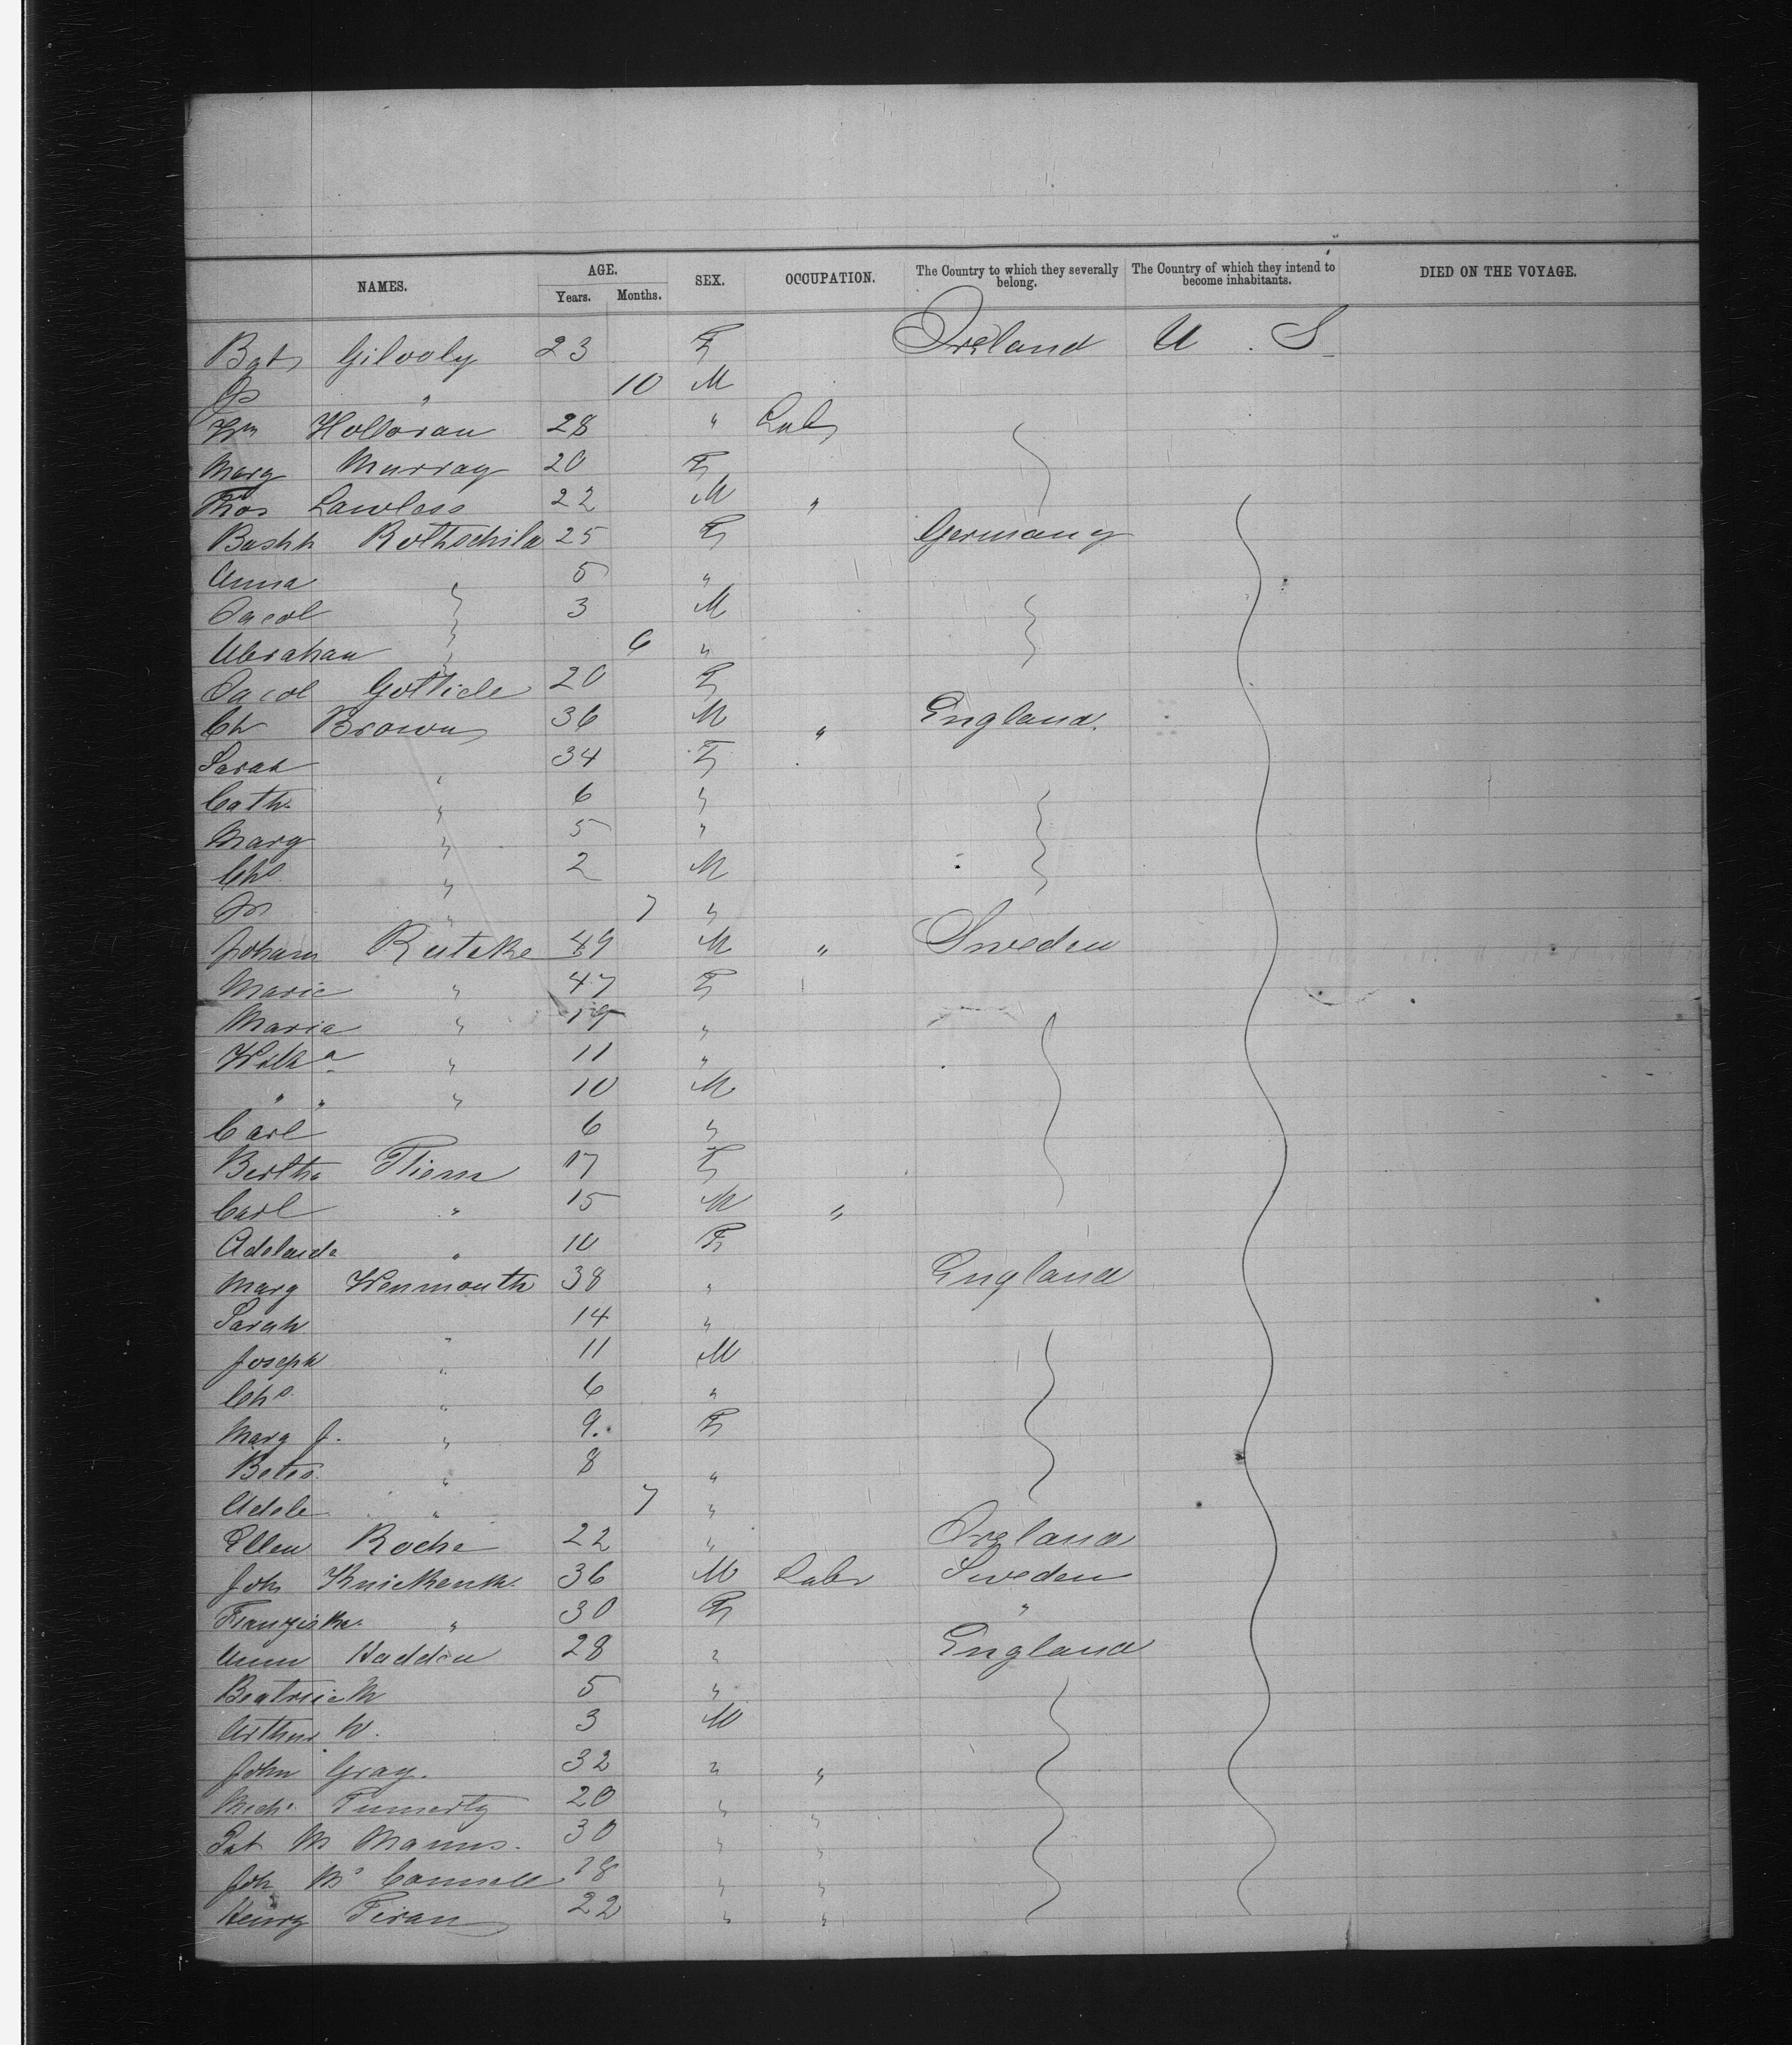 NAMES. AGE. Years. Months. SEX. OCCUPATION. The Country to which they severally belong. The Country of which they intend to become inhabitants. DIED ON THE VOYAGE.
Bgt Gilooly 23 F Ireland U. S.
Js " 10 M
Wm Holloran 28 " Labr
Marg Murray 20 F
Thos Lawless 22 M "
Rothschild 25 F Germany
Anna " 5 "
Jacob " 3 M
Abraham " 6 "
Jacob 20 F
Ch Brown 36 M " England.
Sarah " 34 F
Cath. " 6 "
Marg " 5 "
Chs " 2 M
" 7 "
Johann Rutske 49 M " Sweden
Marie " 47 F
Maria " 19 "
Wilh a " 11 "
" " " 10 M
Carl 6 "
Bertha Thiem 17 F
Carl " 15 M "
Adelaide " 10 F
Marg Wenmouth 38 " England
Sarah " 14 "
Joseph " 11 M
Chs. " 6 "
Marg J. " 9. F
" 8 "
Adele " 7 "
Ellen Roche 22 " Ireland
Joh 36 M Labr Sweden
Franziska " 30 F "
Ann Haddon 28 " England
Beatrice M 5 "
Arthur W. 3 M
John Gray. 32 " "
Mich. 20 " "
Pat Mc Manus. 30 " "
Joh Mc 18 " "
Henry 22 " "